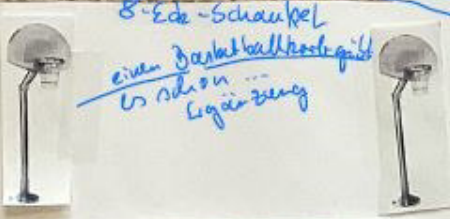 8-Eck-Schaukel
einen Basketballkorb gibt
es schon ...
Ergänzung